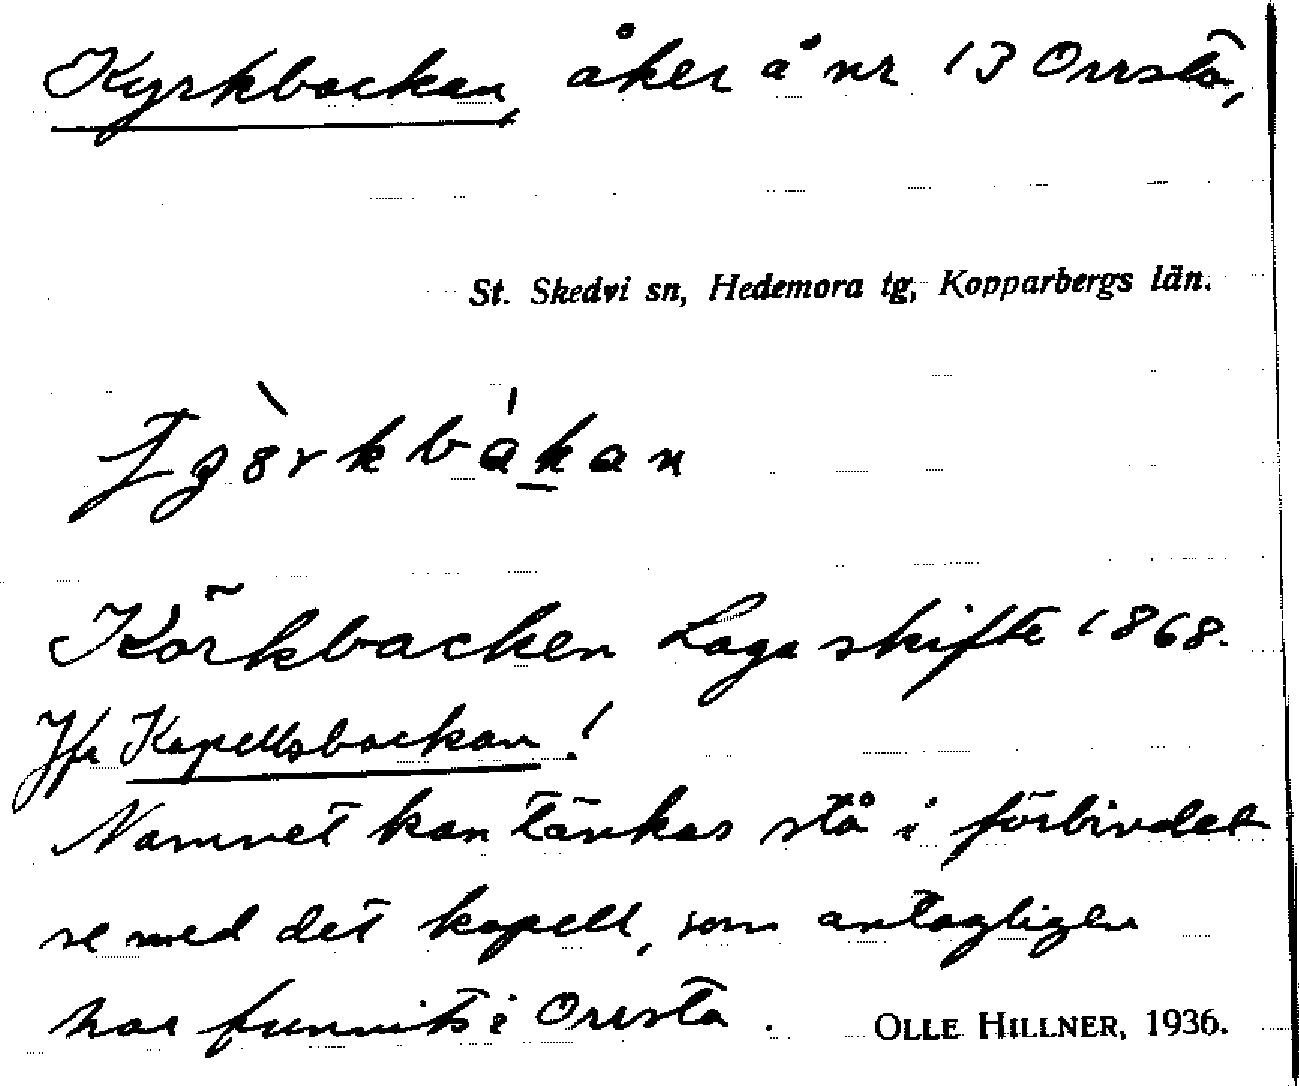 Kyrkbackan, åker å nr 13 Orrsta,
St. Skedvi sn, Hedemora tg, Kopparbergs län.
Körkbacken Laga skifte 1868.
Jfr Kapellsbackan!
Namnet kan tänkas stå i förbindel
se med det kapell, som antagligen
har funnits i Orrsta.
OLLE HILLNER, 1936.